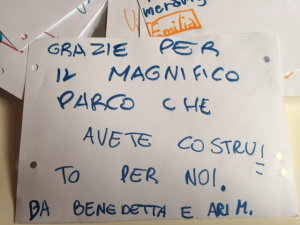 mersin
Emilia
GRAZIE PER
IL MAGNIFICO
PARCO CHE
AVETE COSTRUI
TO PER NOI.
DA BENEDETTA E ARI M.